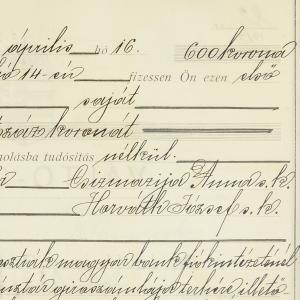 április hó 16. 600 korona
14-én fizessen Ön ezen első
saját
száz koronát
molásba tudósítás nélkül.
Csizmazija Anna s.k.
Horváth József s.k.
osztrák magyar bank fiókintézeténél
girószámlája terhére illető